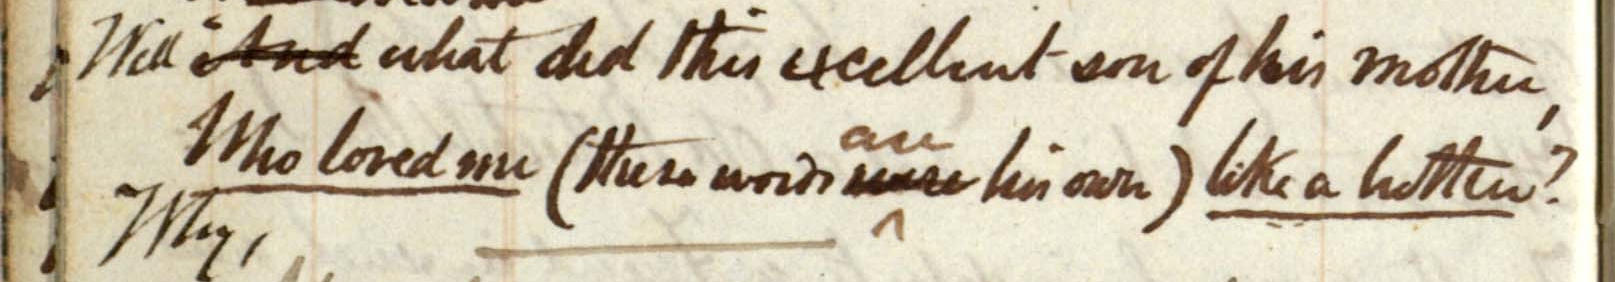 Well "And what did this excellent son of his mother,
Who loved me (these words were are his own) like a brother?
Why,